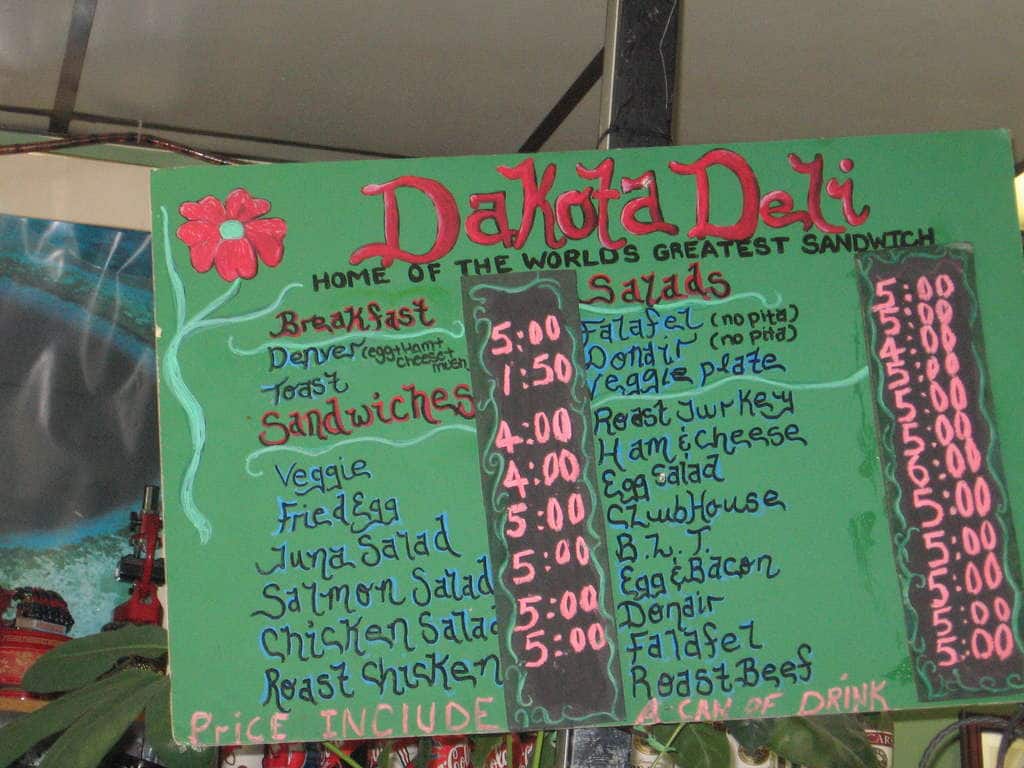 Dakota Deli
HOME OF THE WORLD'S GREATEST SANDWICH
Breakfast
Denver (egg+Ham+
cheese+
mush
Toast
Sandwiches
Veggie
Fried Egg
Tuna Salad
Salmon Salad
Chicken Salad
Roast Chicken
5:00
1:50
4:00
4:00
5:00
5:00
5:00
5:00
Salads
Falafel (no pita)
Donair (no pita)
Veggie plate
Roast Turkey
Ham & Cheese
Egg Salad
ClubHouse
B.L.T.
Egg & Bacon
Donair
Falafel
Roast Beef
5:00
5:00
4:00
5:00
5:00
5:00
6:00
5:00
5:00
5:00
5:00
5:00
Price INCLUDE A CAN OF DRINK